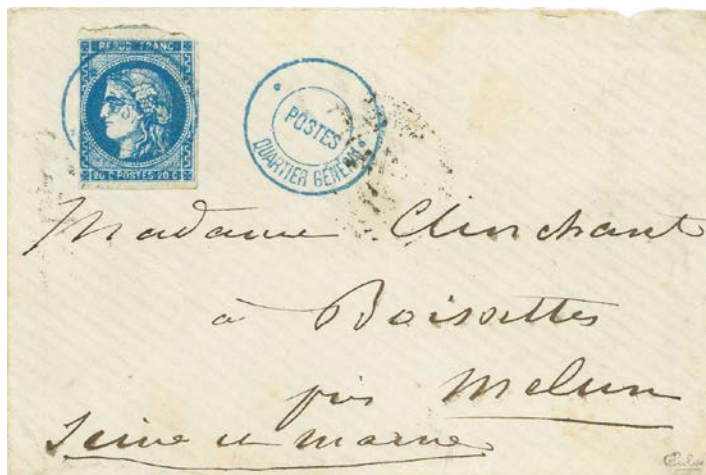 REPUB. FRANC.
20 C POSTES 20 C
POSTES
QUARTIER GÉNÉRAL
Madame Clinchant
à Boissettes
près Melun
Seine et marne